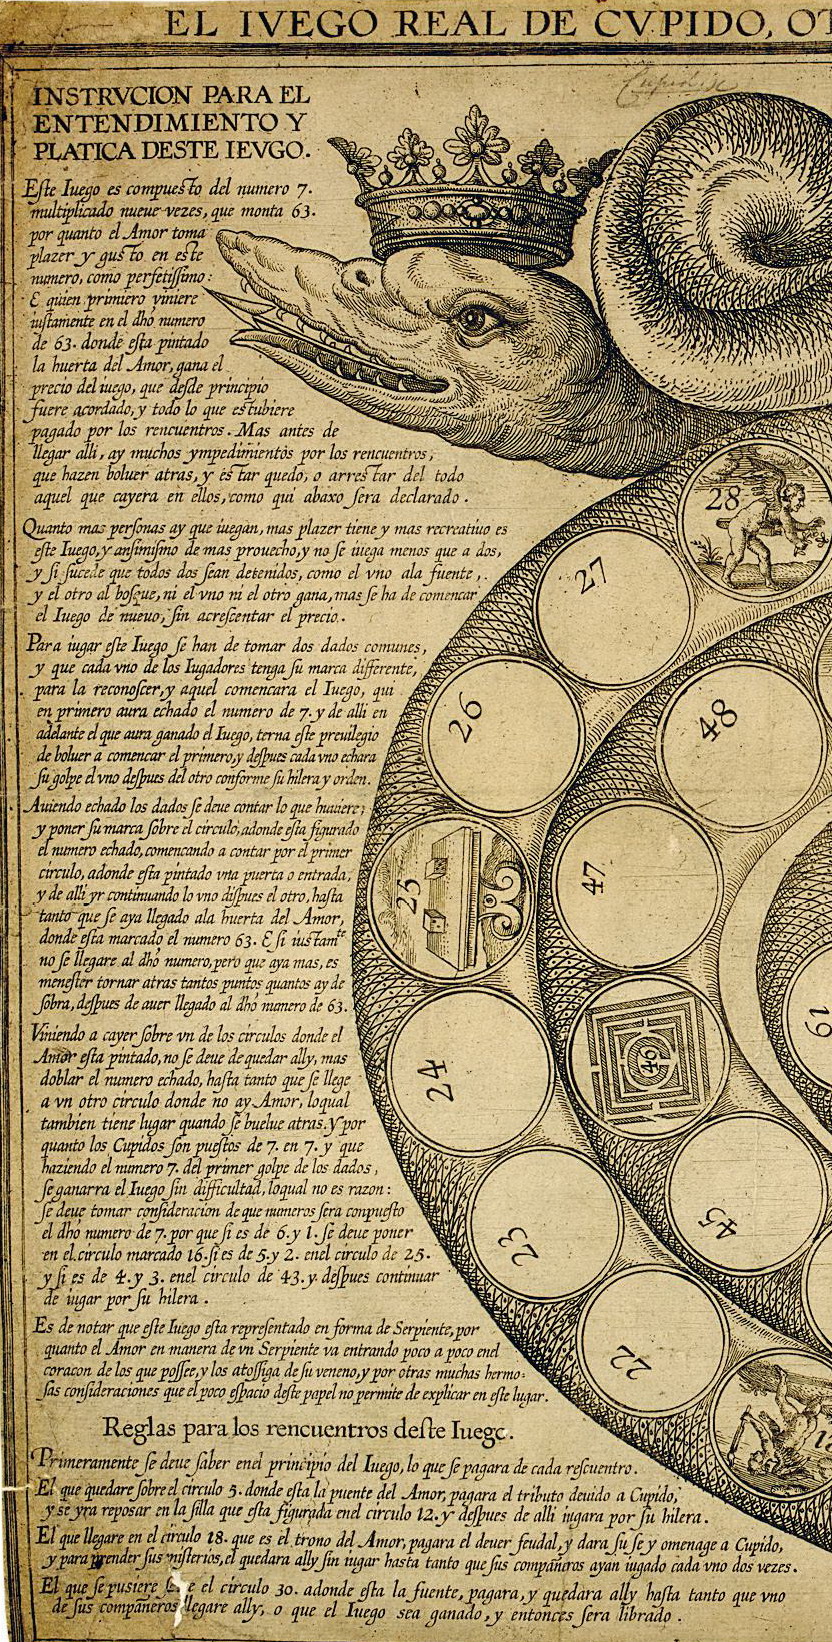 EL IVEGO REAL DE CVPIDO, OT
Cupid
INSTRVCION PARA EL
ENTENDIMIENTO Y
PLATICA DESTE IEVGO.
Eſte Iuego es compueſto del numero 7.
multiplicado nueue vezes, que monta 63.
por quanto el Amor toma
plazer y guſto en eſte
numero, como perfetiſſimo:
E quien primiero viniere
iuſtamente en el dhõ numero
de 63. donde eſta pintado
la huerta del Amor, gana el
precio del iuego, que deſde principio
fuere acordado, y todo lo que eſtubiere
pagado por los rencuentros. Mas antes de
llegar alli, ay muchos ympedimientos por los rencuentros,
que hazen boluer atras, y eſtar quedo, o arreſtar del todo
aquel que cayera en ellos, como qui abaxo ſera declarado.
Quanto mas perſonas ay que iuegan, mas plazer tiene y mas recreatiuo es
eſte Iuego, y anſimiſmo de mas prouecho, y no ſe iuega menos que a dos,
y ſi ſucede que todos dos ſean detenidos, como el vno ala fuente,
y el otro al boſque, ni el vno ni el otro gana, mas ſe ha de comencar
el Iuego de nueuo, ſin acreſcentar el precio.
Para iugar eſte Iuego ſe han de tomar dos dados comunes,
y que cada vno de los Iugadores tenga ſu marca differente,
para la reconoſcer, y aquel comencara el Iuego, qui
en primero aura echado el numero de 7. y de alli en
adelante el que aura ganado el Iuego, terna eſte preuilegio
de boluer a comencar el primero, y deſpues cada vno echara
ſu golpe el vno deſpues del otro conforme ſu hilera y orden.
Auiendo echado los dados ſe deue contar lo que huuiere;
y poner ſu marca ſobre el circulo, adonde eſta figurado
el numero echado, comencando a contar por el primer
circulo, adonde eſta pintado vna puerta o entrada,
y de alli yr continuando lo vno diſpues el otro, haſta
tanto que ſe aya llegado ala huerta del Amor,
donde eſta marcado el numero 63. E ſi iuſtamte
no ſe llegare al dhõ numero, pero que aya mas, es
meneſter tornar atras tantos puntos quantos ay de
ſobra, deſpues de auer llegado al dhõ numero de 63.
Viniendo a cayer ſobre vn de los circulos donde el
Amor eſta pintado, no ſe deue de quedar ally, mas
doblar el numero echado, haſta tanto que ſe llege
a vn otro circulo donde no ay Amor, loqual
tambien tiene lugar quando ſe buelue atras. Y por
quanto los Cupidos ſon pueſtos de 7. en 7. y que
haziendo el numero 7. del primer golpe de los dados,
ſe ganarra el Iuego ſin difficultad, loqual no es razon:
ſe deue tomar conſideracion de que numeros ſera conpueſto
el dhõ numero de 7. por que ſi es de 6. y 1. ſe deue poner
en el circulo marcado 16. ſi es de 5. y 2. enel circulo de 25.
y ſi es de 4. y 3. enel circulo de 43. y deſpues continuar
de iugar por ſu hilera.
Es de notar que eſte Iuego eſta repreſentado en forma de Serpiente, por
quanto el Amor en manera de vn Serpiente va entrando poco a poco enel
coracon de los que poſſee, y los atoſſiga de ſu veneno, y por otras muchas hermo-
ſas conſideraciones que el poco eſpacio deſte papel no permite de explicar en eſte lugar.
Reglas para los rencuentros deſte Iuego.
Primeramente ſe deue ſaber enel principio del Iuego, lo que ſe pagara de cada reſcuentro.
El que quedare ſobre el circulo 5. donde eſta la puente del Amor, pagara el tributo deuido a Cupido,
y se yra reposar en la ſilla que eſta figurada enel circulo 12. y deſpues de alli iugara por ſu hilera.
El que llegare en el circulo 18. que es el trono del Amor, pagara el deuer feudal, y dara ſu fe y omenage a Cupido,
y para prender ſus miſterios, el quedara ally ſin iugar haſta tanto que ſus compañeros ayan iugado cada vno dos vezes.
El que ſe puſiere el circulo 30. adonde eſta la fuente, pagara, y quedara ally haſta tanto que vno
de ſus compañeros llegare ally, o que el Iuego sea ganado, y entonces ſera librado.
28
27
26
48
25
47
24
46
61
23
45
22